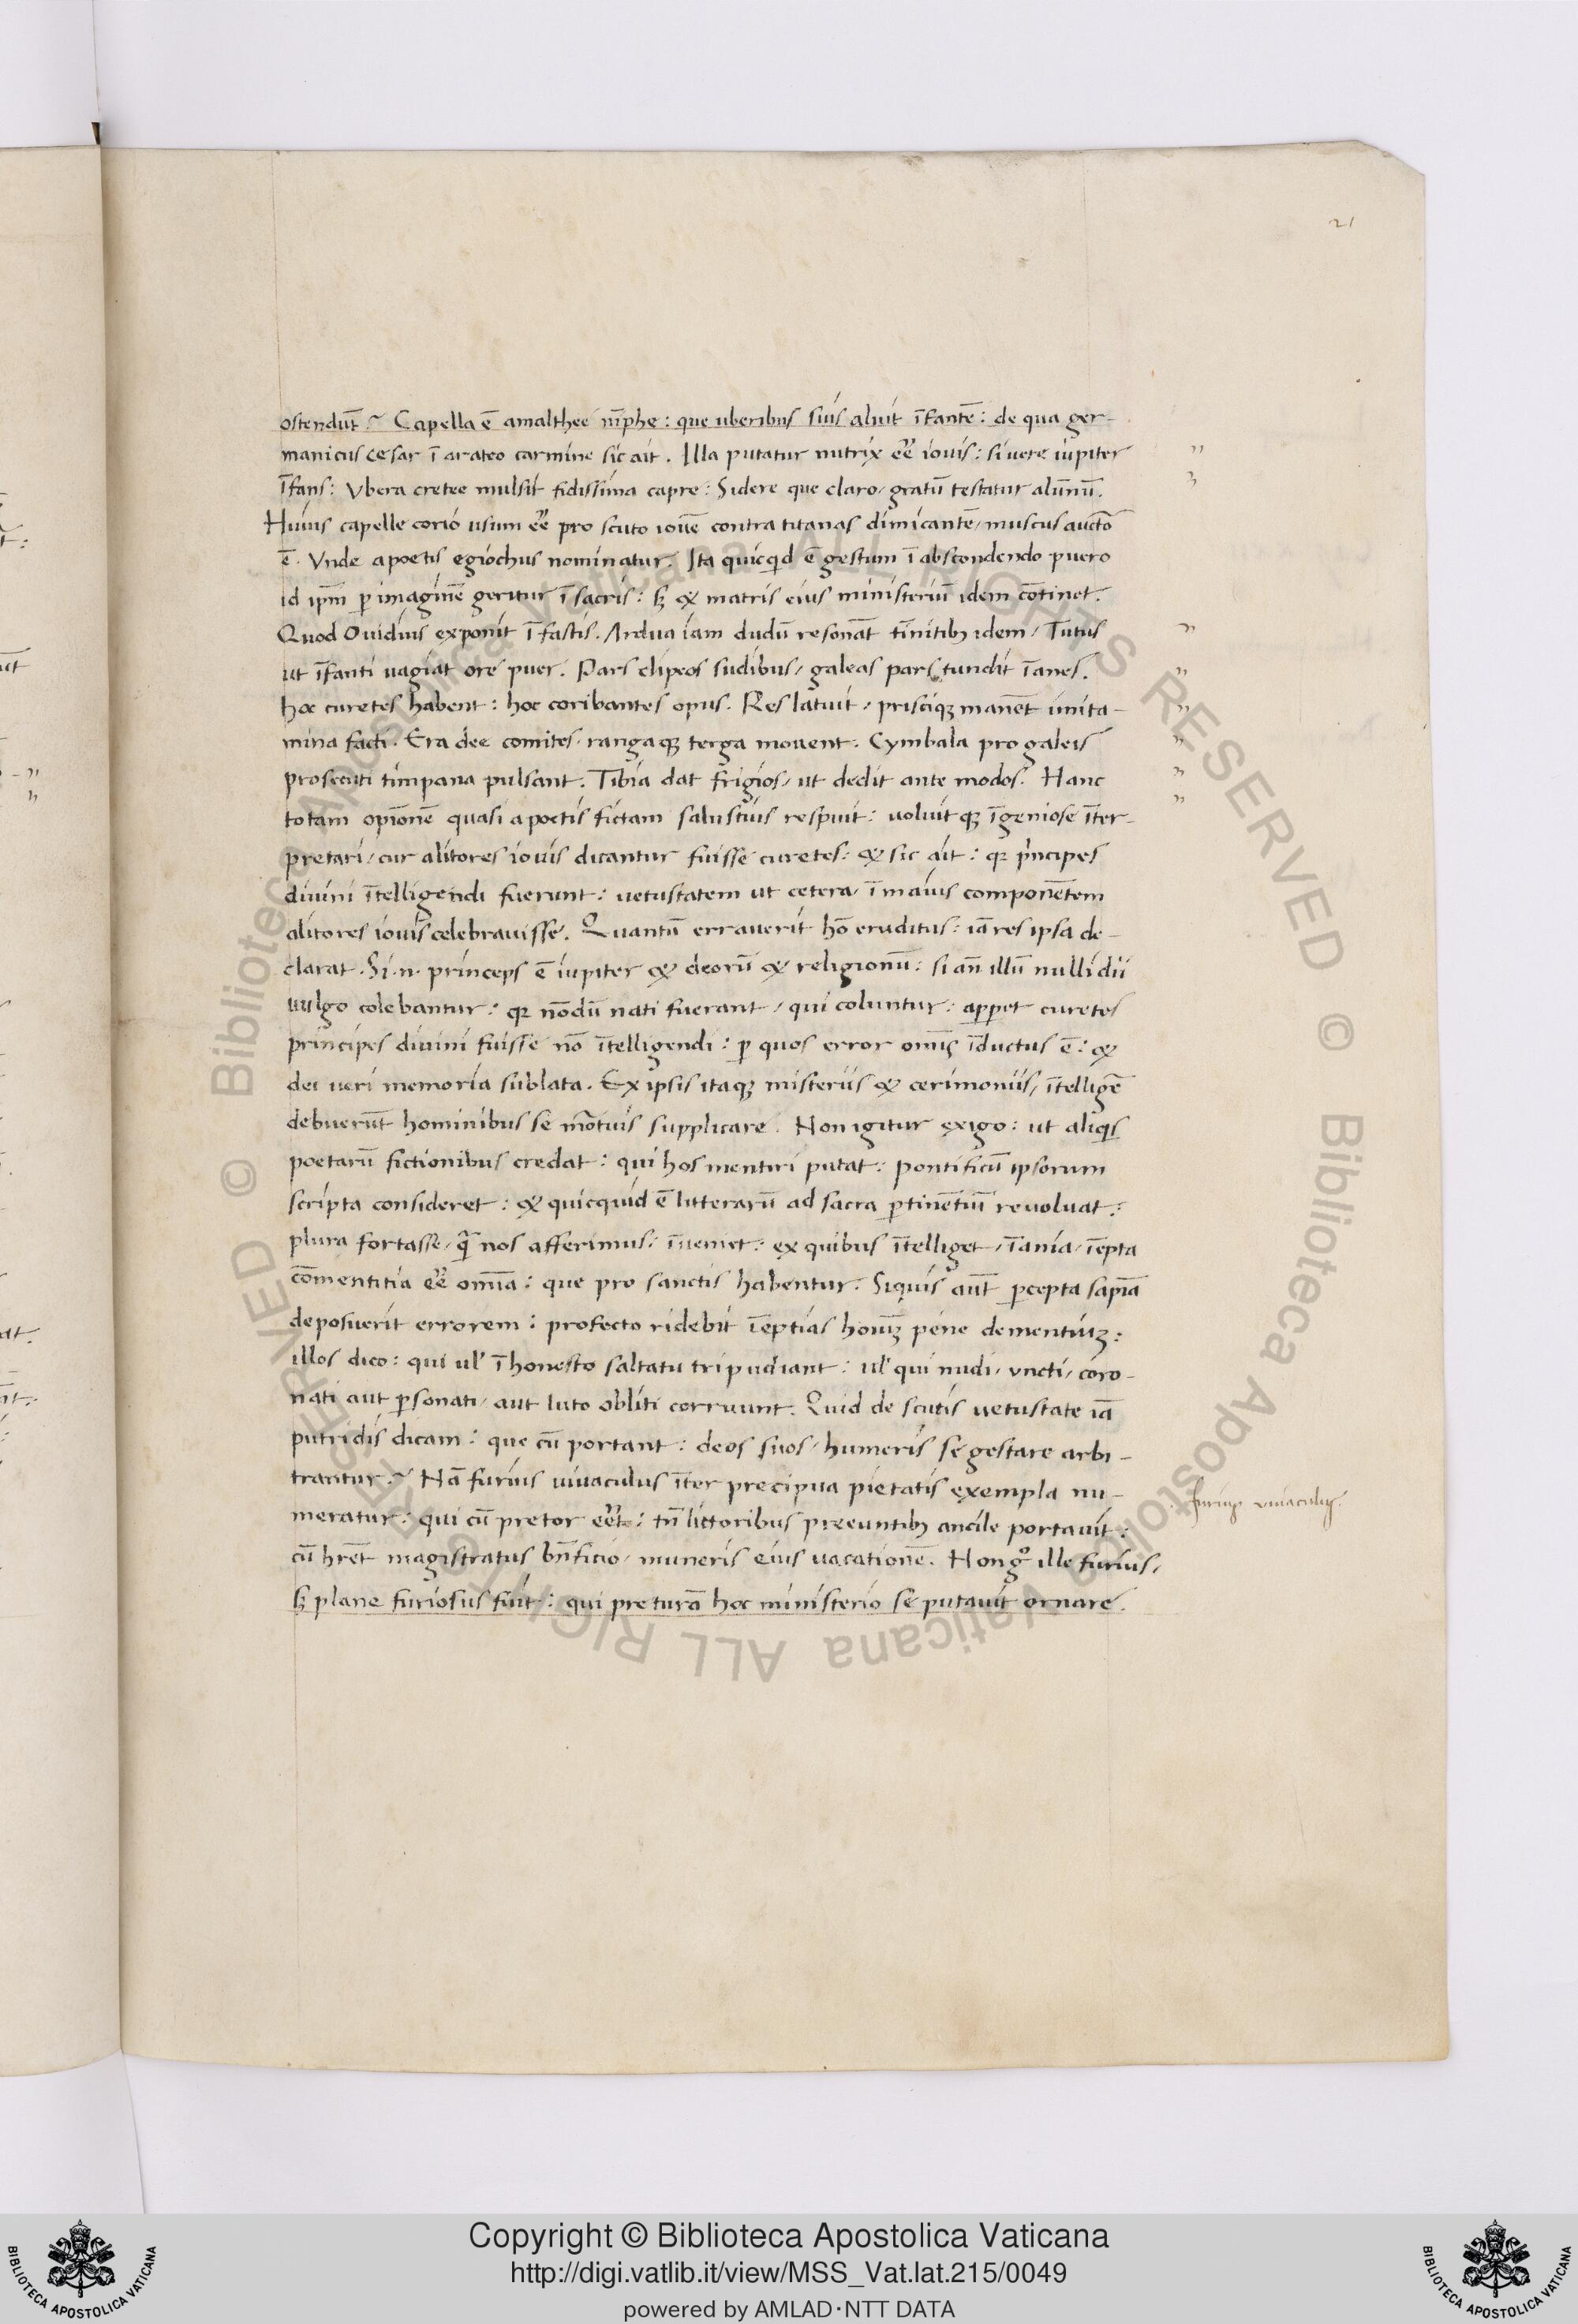 21
ostendūt? Capella ē amalthee nīphe: que uberibus suis aluit īfantē: de qua ger-
manicus cesar ī arateo carmine sic ait. Illa putatur nutrix eē iouis: si uere iupiter
īfans: Vbera cretee mulsit fidissima capre: Sidere que claro, gratū testatur alūnū.
Huius capelle corio usum eē pro scuto iouē contra titanas dimicantē, muscus auctō
ē. Vnde a poetis egiochus nominatur. Ita quicqd ē gestum ī abscondendo puero
id ipm̄ p imaginē geritur ī sacris: sꝫ & matris eius ministeriū idem cōtinet.
Quod Ouidius exponit ī fastis. Ardua iam dudū resonāt tīnitibꝫ idem, Tutus
ut īfanti uagiat ore puer. Pars clipeos sudibus, galeas pars tundit īanes.
hoc curetes habent: hoc coribantes opus. Res latuit, prisciqꝫ manēt imita-
mina facti. Era dee comites, rangaqꝫ terga mouent. Cymbala pro galeis
pro scuti timpana pulsant. Tibia dat frigios, ut dedit ante modos. Hanc
totam opīonē quasi a poetis fictam salustius respuit: uoluit qꝫ īgeniose īter-
pretari, cur alitores iouis dicantur fuisse curetes: & sic ait: qꝛ p̄ncipes
diuini ītelligendi fuerunt: uetustatem ut cetera, ī maius componētem
alitores iouis celebrauisse. Quantū errauerit hō eruditus: iā res ipsa de-
clarat. Si .n. princeps ē iupiter & deorū & religionū: si an̄ illū nulli dii
uulgo colebantur: qꝛ nōdū nati fuerant, qui coluntur: apꝑet curetes
principes diuini fuisse nō ītelligendi: ꝑ quos error omīs īductus ē: &
dei ueri memoria sublata. Ex ipsis itaqꝫ misteriis & cerimoniis, ītelligē
debuerūt hominibus se mōtuis supplicare. Non igitur exigo: ut aliqs
poetarū fictionibus credat: qui hos mentiri putat: pontificū ipsorum
scripta consideret: & quicquid ē litterarū ad sacra ꝑtinētiū reuoluat:
plura fortasse, q̄ nos afferimus: īueniet: ex quibus ītelliget, īania, īepta
cōmentitia eē omīa: que pro sanctis habentur. Siquis aūt ꝑcepta sapīa
deposuerit errorem: profecto ridebit īeptias hoīuꝫ pene dementiuꝫ:
illos dico: qui ul' īhonesto saltatu tripudiant: ul' qui nudi, uncti, coro-
nati aut ꝑsonati, aut luto obliti corruunt. Quid de scutis uetustate iā
putridis dicam: que cū portant: deos suos, humeris se gestare arbi-
trantur? Nā furius uiuaculus īter precipua pietatis exempla nu-
meratur: qui cū pretor eēt: tn̄ littoribus preeuntibꝫ ancile portauit:
furius viuaculus
cū hrēt magistratus bn̄ficio, muneris eius uacationē. Non gͦ ille furius,
sꝫ plane furiosus fuit: qui preturā hoc ministerio se putauit ornare.
© Biblioteca Apostolica Vaticana ALL RIGHTS RESERVED © Biblioteca Apostolica Vaticana ALL RIGHTS RESERVED
BIBLIOTECA APOSTOLICA VATICANA
Copyright © Biblioteca Apostolica Vaticana
http://digi.vatlib.it/view/MSS_Vat.lat.215/0049
powered by AMLAD·NTT DATA
BIBLIOTECA APOSTOLICA VATICANA